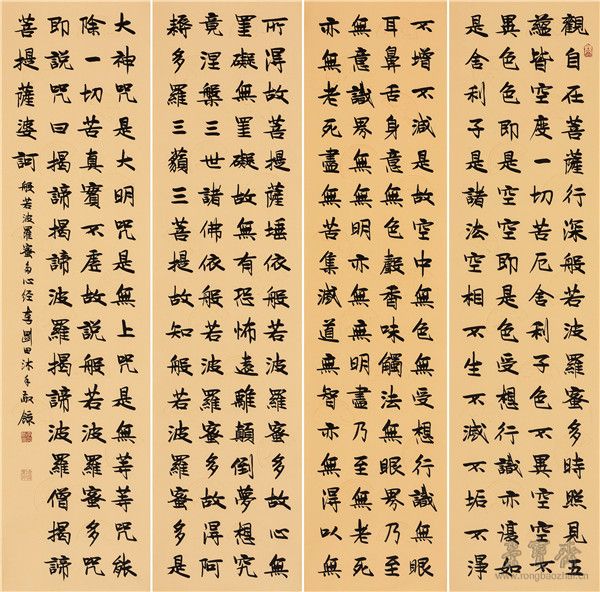 觀自在菩薩行深般若波羅蜜多時照見五
蘊皆空度一切苦厄舍利子色不異空空不
異色色即是空空即是色受想行識亦復如
是舍利子是諸法空相不生不滅不垢不淨
不增不減是故空中無色無受想行識無眼
耳鼻舌身意無色聲香味觸法無眼界乃至
無意識界無無明亦無無明盡乃至無老死
亦無老死盡無苦集滅道無智亦無得以無
所得故菩提薩埵依般若波羅蜜多故心無
罣礙無罣礙故無有恐怖遠離顛倒夢想究
竟涅槃三世諸佛依般若波羅蜜多故得阿
耨多羅三藐三菩提故知般若波羅蜜多是
大神咒是大明咒是無上咒是無等等咒能
除一切苦真實不虛故說般若波羅蜜多咒
即說咒曰揭諦揭諦波羅揭諦波羅僧揭諦
菩提薩婆訶 般若波羅蜜多心经 劉田沐手敬錄
荣寶齋
www.rongbaozhai.cn